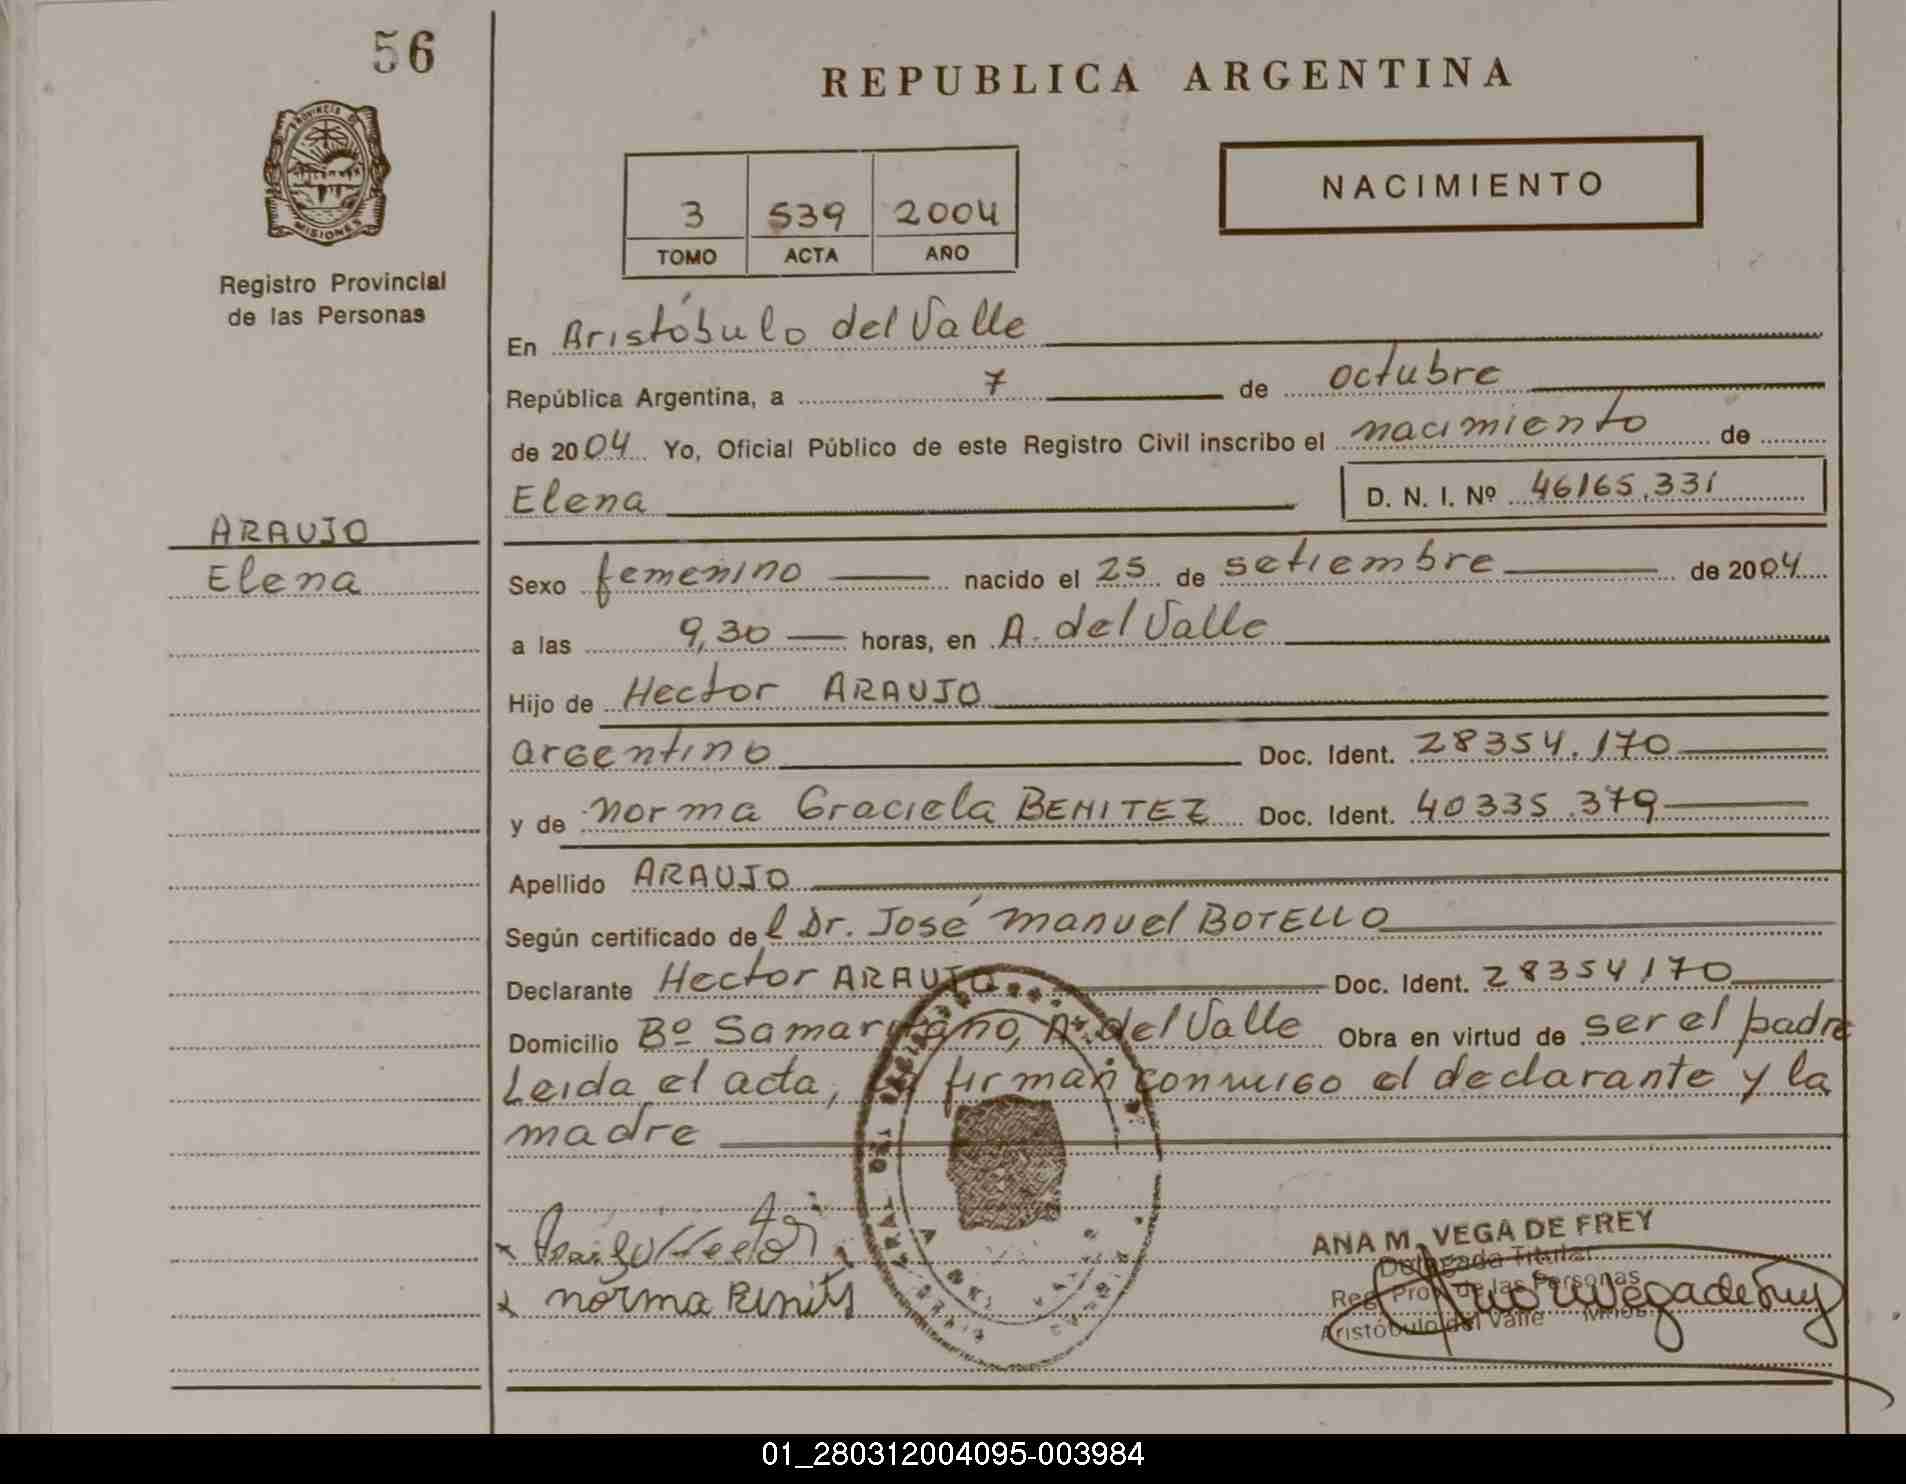 56
REPUBLICA ARGENTINA
PROVINCIA DE
MISIONES
Registro Provincial
de las Personas
3 539 2004
TOMO ACTA AÑO
NACIMIENTO
En Aristóbulo del Valle
República Argentina, a 7 de octubre
de 2004 Yo, Oficial Público de este Registro Civil inscribo el nacimiento de
Elena D. N. I. Nº 46165.331
ARAUJO
Elena
Sexo femenino nacido el 25 de setiembre de 2004
a las 9,30 horas, en A. del Valle
Hijo de Hector ARAUJO
argentino Doc. Ident. 28354.170
y de Norma Graciela BENITEZ Doc. Ident. 40335.379
Apellido ARAUJO
Según certificado del Dr. José Manuel BOTELLO
Declarante Hector ARAUJO Doc. Ident. 28354170
Domicilio Bº Samaritano, A. del Valle Obra en virtud de ser el padre
Leida el acta, la firman conmigo el declarante y la
madre
ANA M. VEGA DE FREY
Delegada Titular
Reg. Prov. de las Personas
Aristóbulo del Valle Mnes.
x Araujo Hector
x norma Benites
01_280312004095-003984